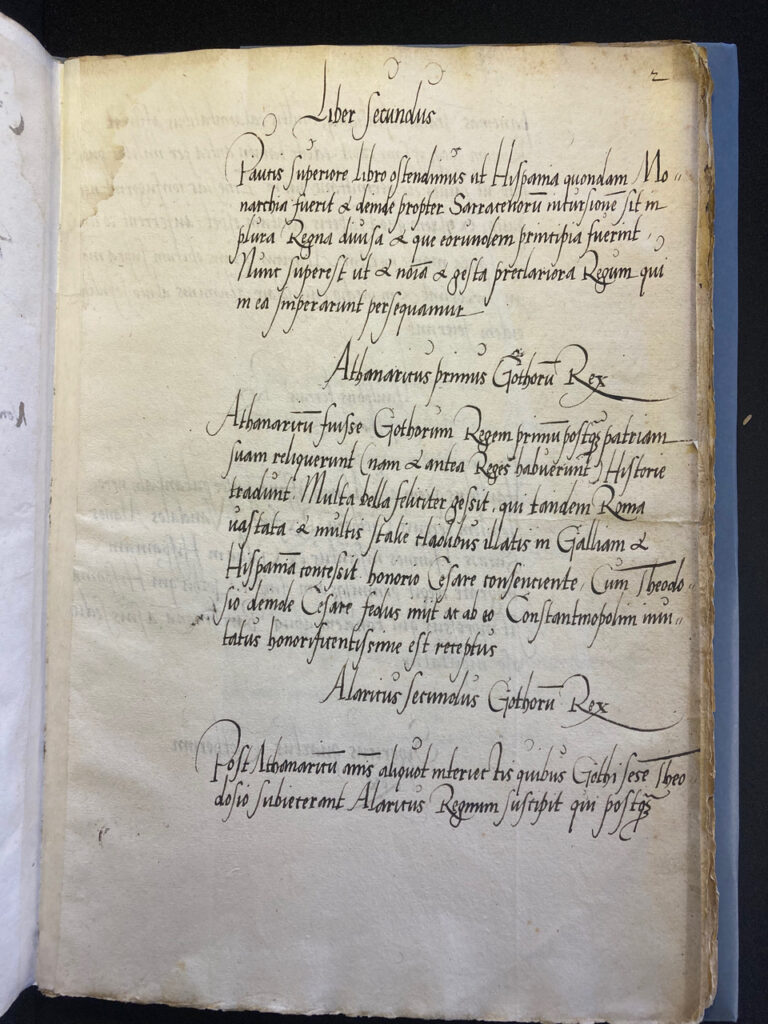 2
Liber secundus
Paucis superiore libro ostendimus ut Hispania quondam Mo„
narchia fuerit & deinde propter Sarracenorū incursionē sit in
plura Regna divisa & que eorundem principia fuerint.
Nunc superest ut & noīa & gesta preclariora Regum qui
in ea Imperarunt persequamur
Athanaricus primus Gothorū Rex
Athanaricū fuisse Gothorum Regem primū postq̃ patriam
suam reliquerunt (nam & antea Reges habuerunt) Historie
tradunt. Multa bella feliciter gessit. qui tandem Roma
vastata & multis Italie cladibus illatis in Galliam &
Hispaniā concessit honorio Cesare consenciente. Cum Theodo„
sio deinde Cesare fedus inijt ac ab eo Constantinopolim invi„
tatus honorificentissime est receptus
Alaricus secundus Gothorū Rex
Post Athanaricū annis aliquot interiectis quibus Gothi sese Theo
dosio subiecerant Alaricus Regnum suscipit qui postq̃